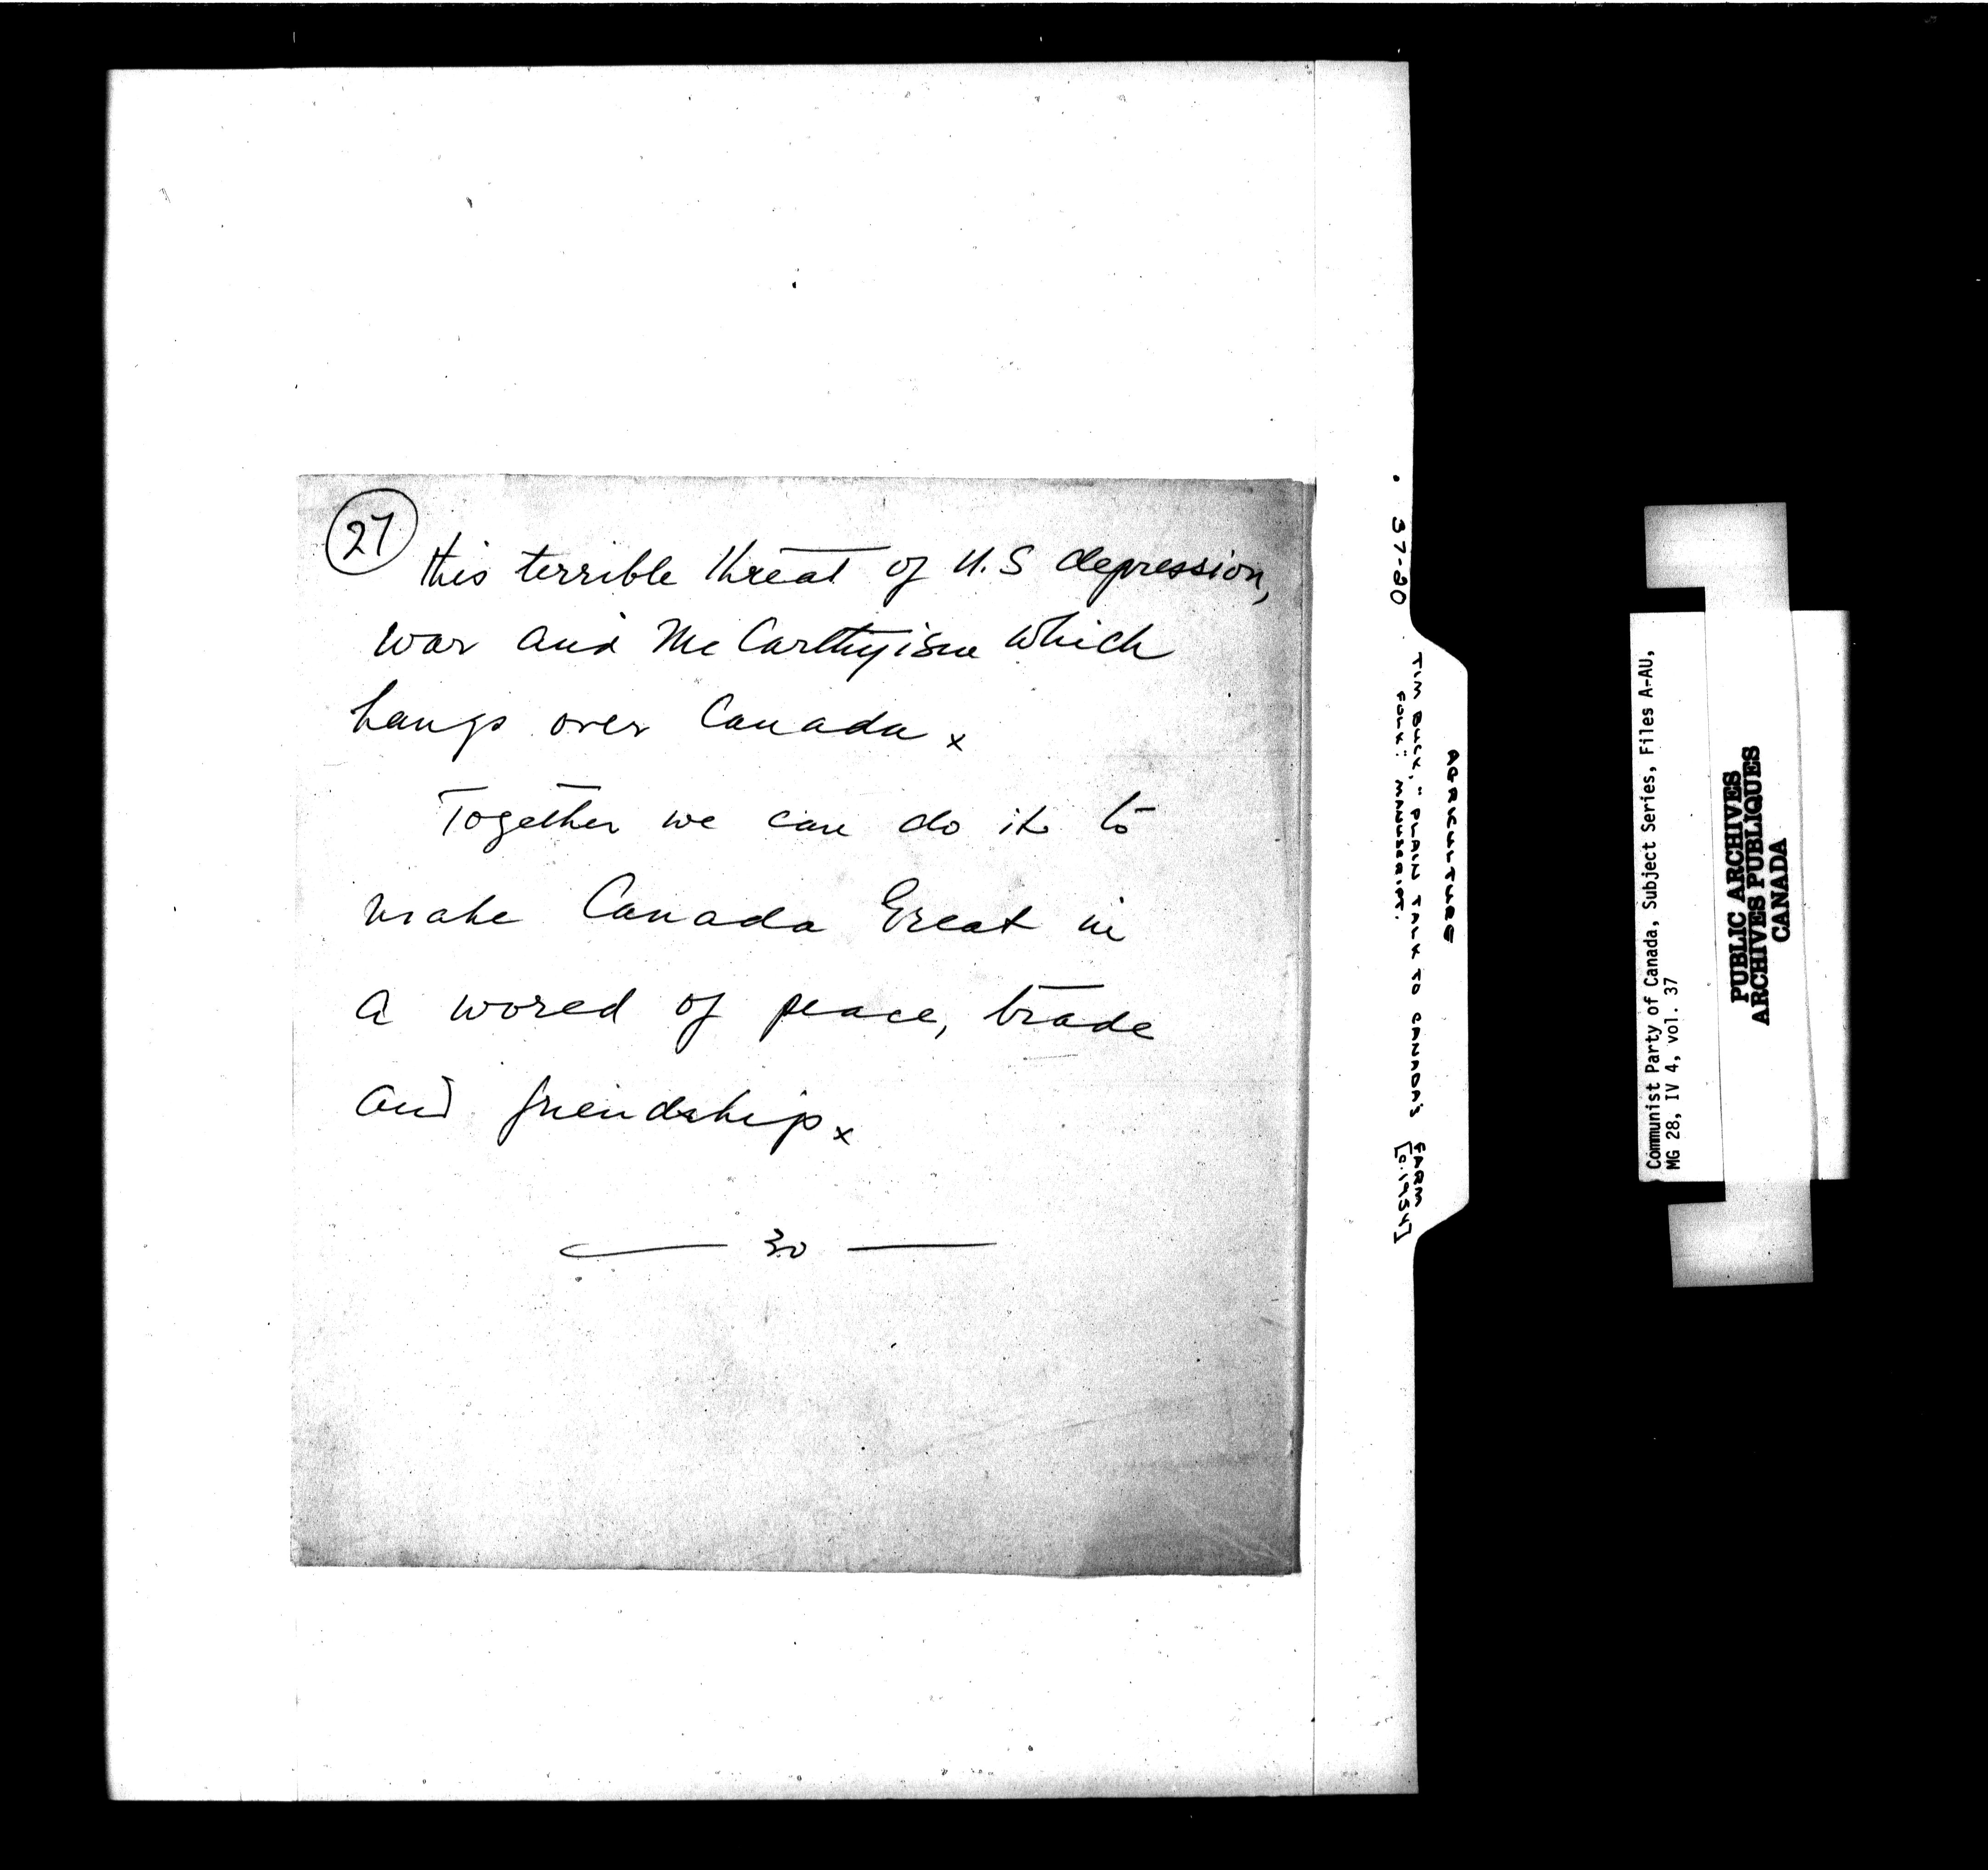 27
this terrible threat of U.S depression,
war and McCarthyism which
hangs over Canada x
Together we can do it to
make Canada Great in
a world of peace, trade
and friendship x
— 30 —
37-20
AGRICULTURE
TIM BUCK, "PLAIN TALK TO CANADA'S FARM
FOLK". MANUSCRIPT. [c.1954]
Communist Party of Canada, Subject Series, Files A-AU,
MG 28, IV 4, vol. 37
PUBLIC ARCHIVES
ARCHIVES PUBLIQUES
CANADA